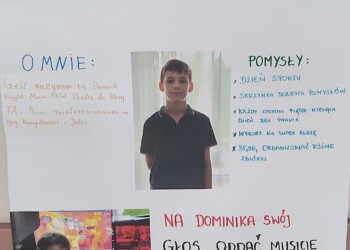 O MNIE:
Cześć nazywam się Dominik
7A. Moje zainteresowania to
gry komputerowe i
POMYSŁY:
DZIEŃ SPORTU
SKRZYNKA DOBRYCH POMYSŁÓW
KAŻDY OSTATNI PIĄTEK MIESIĄCA
DZIEŃ BEZ PYTANIA
WYBORY NA SUPER KLASĘ
BĘDĘ ORGANIZOWAĆ RÓŻNE
ZBIÓRKI
NA DOMINIKA SWÓJ
GŁOS ODDAĆ MUSICIE